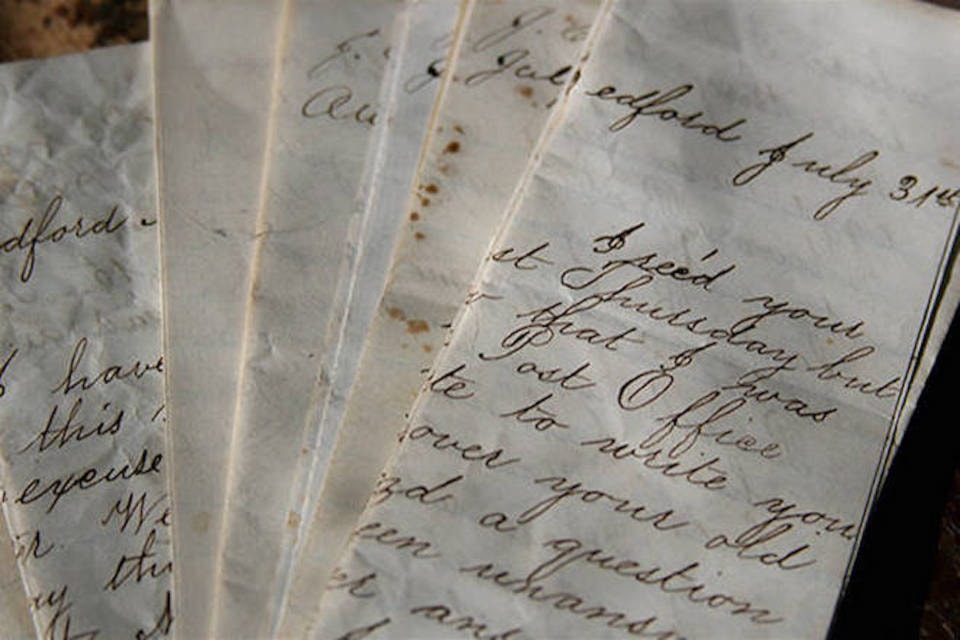 dford
I have
this
excuse
We
ay thi
J.
Au
J.
Jul
edford July 31st
I rec'd your
st Thursday but
that I was
Post Office
te to write you
over your old
nd a question
een unans
er ans